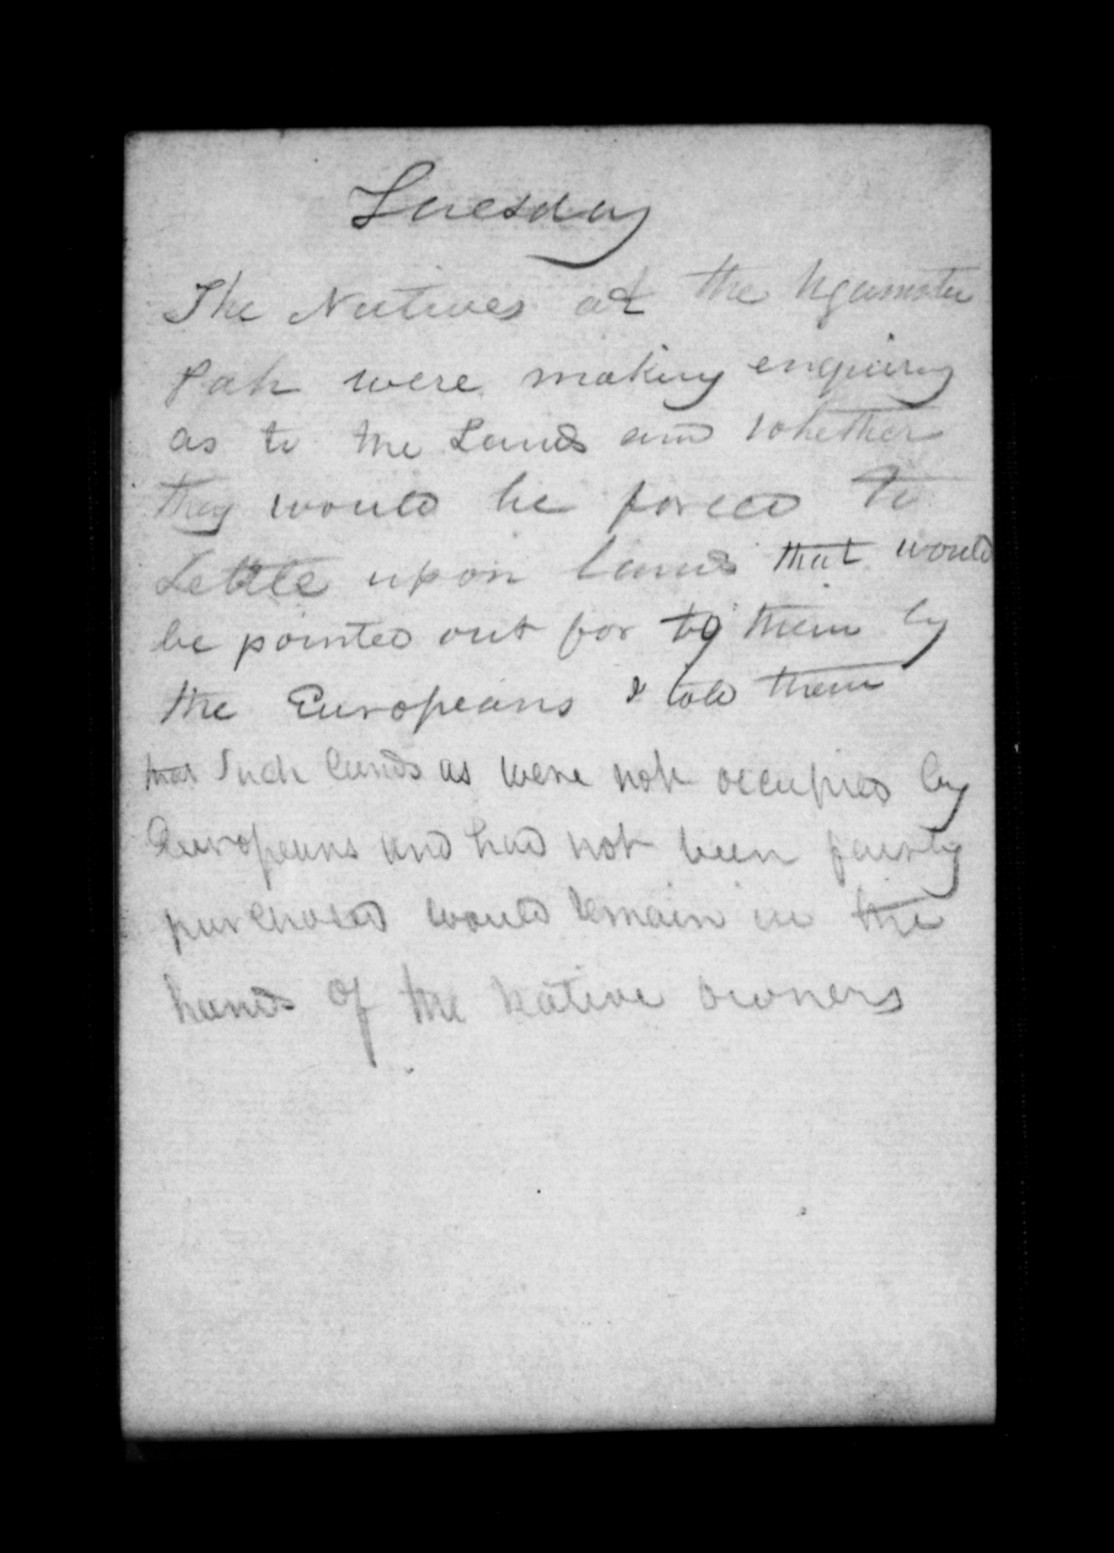 Tuesday
The Natives at the Ngamotu
Pah were making enquiry
as to the Lands and whether
they would be forced to
Settle upon lands that would
be pointed out for to them by
the Europeans I told them
that Such lands as were not occupied by
Europeans and had not been fairly
purchased would remain in the
hands of the native owners